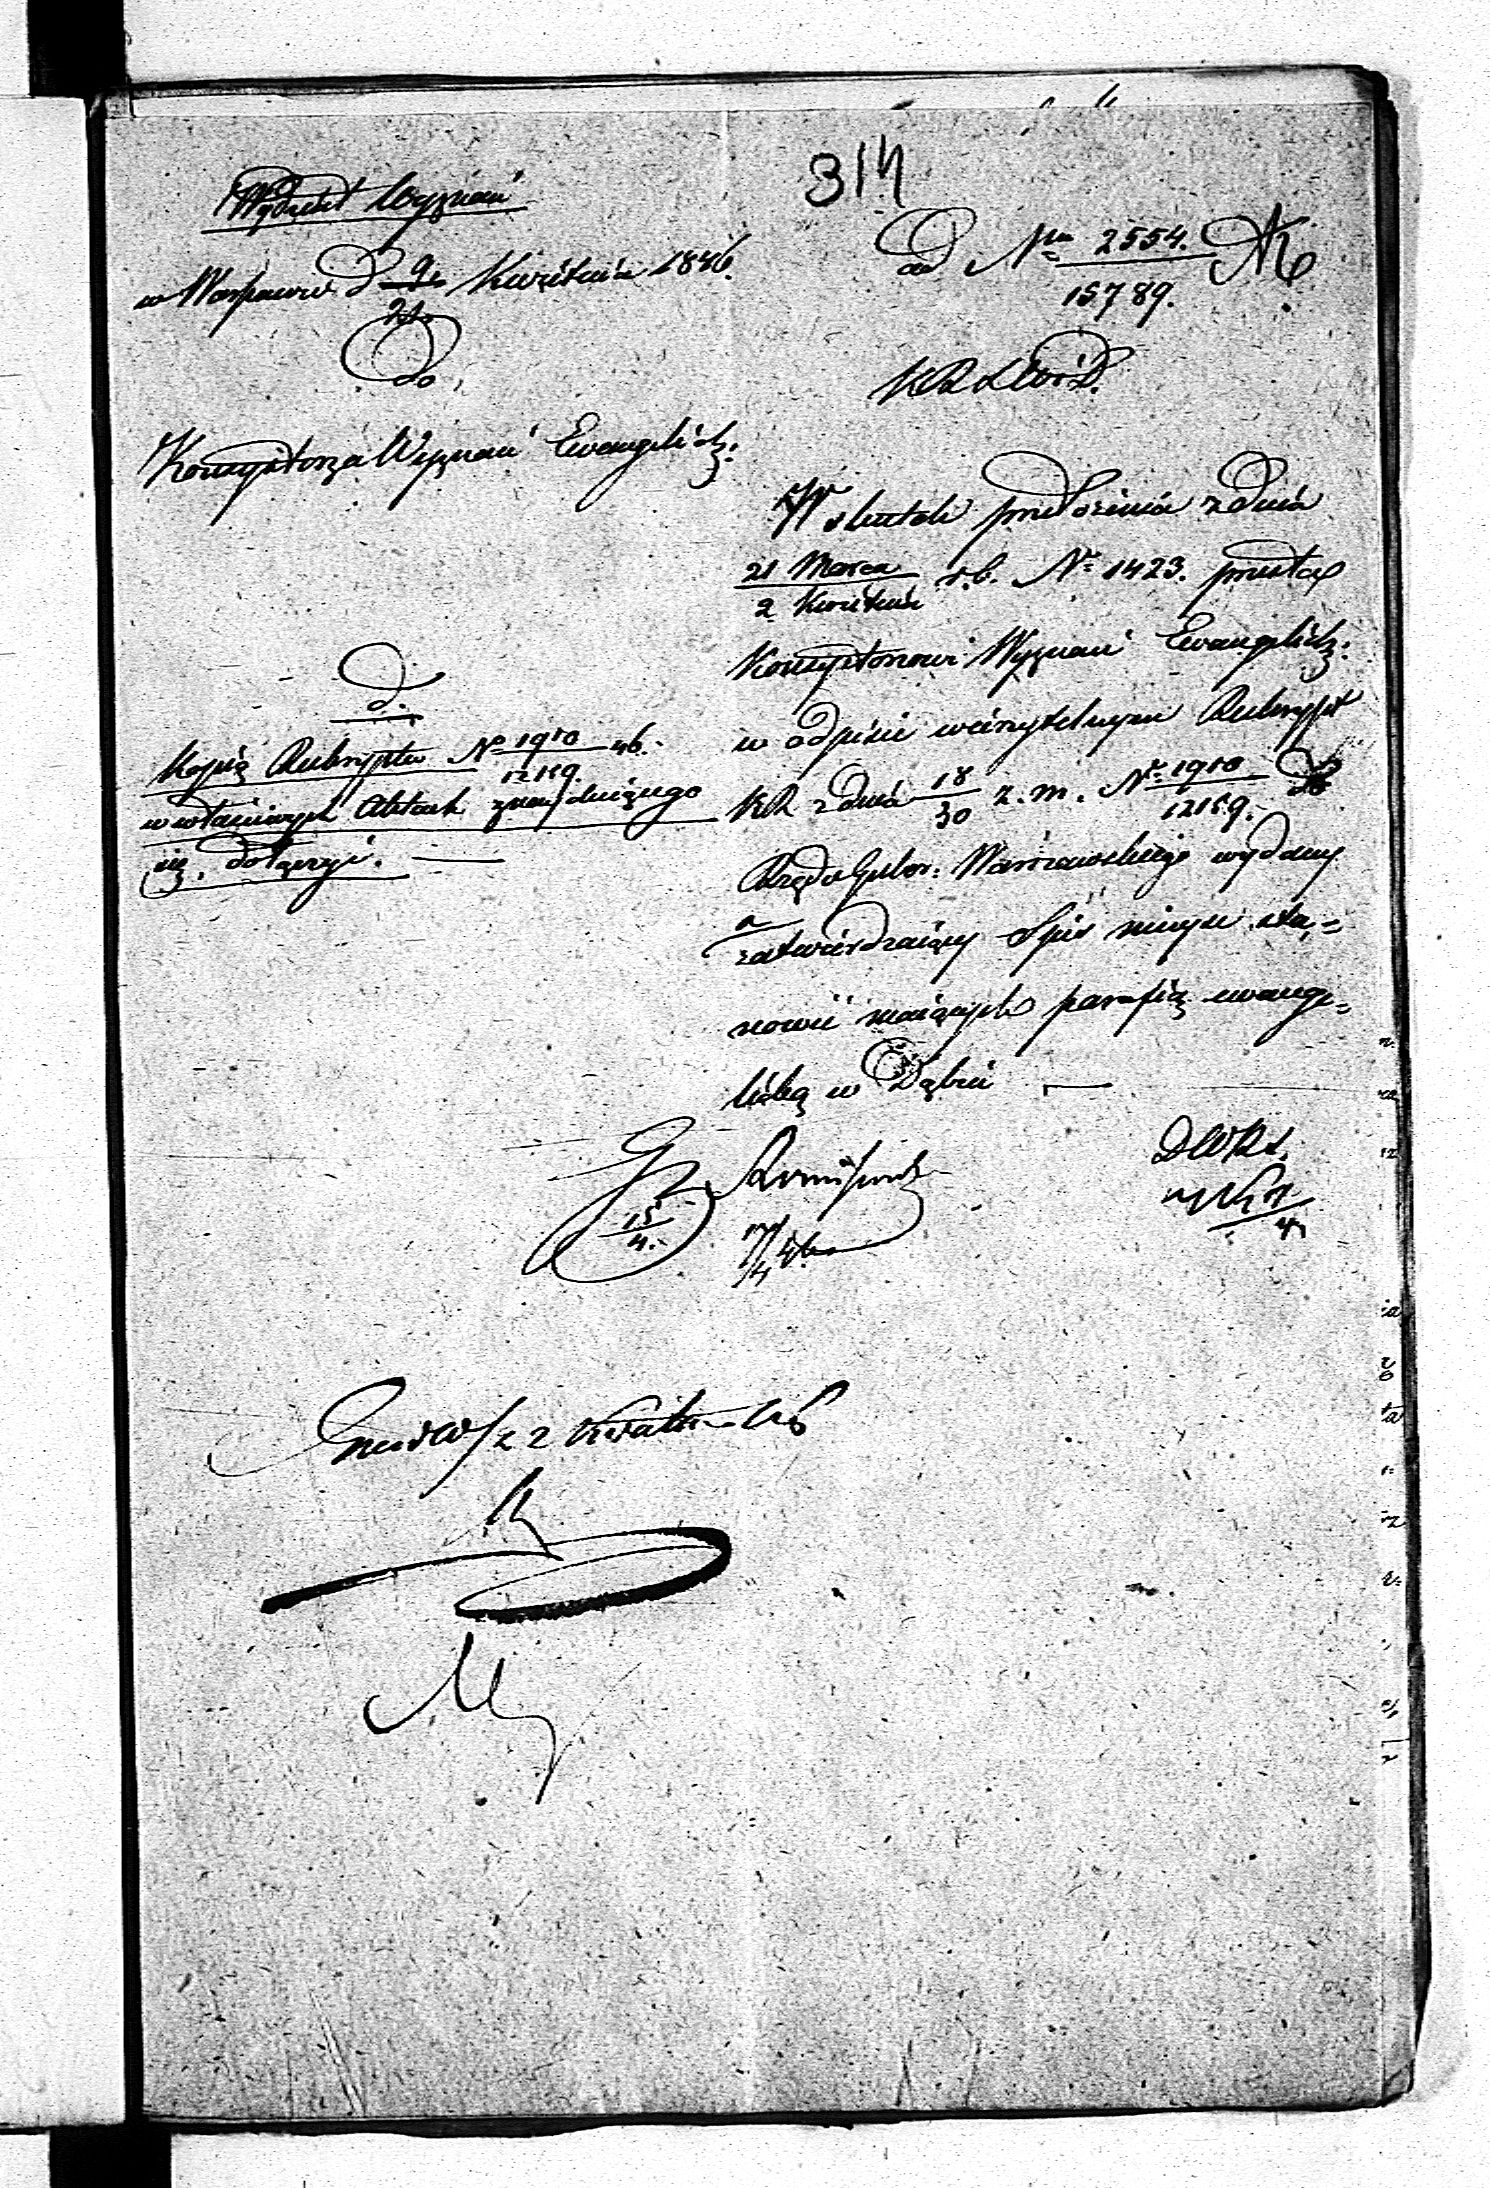 314
Wydział Wyznań
w Warszawie d 9/21 Kwietnia 1846.
ad Nrm 2554./15789.
Do
K R S W i D.
Konsystorza Wyznań Ewangelick:
W skutek przedłożenia z dnia
21 Marca/2 Kwietnia r. b. Nr 1423. przesta
Konsystorzowi Wyznań Ewangelick:
w odpisie wierzytelnym Reskrypt
KR z dnia 18/30 z. m. Nr 1910/12159. do
Rządu Guber: Warszawskiego wydany
a
zatwierdzaiący Spis miejsc sta,=
nowić maiących parafią ewange=
licką w Dąbiu
d.
Kopią Reskryptu No 1910/12159. 46.
w właściwych Aktach znayduiącego
się, dołączyć.
15/4.
17/4 46
D W R S.
2 Kwietnia